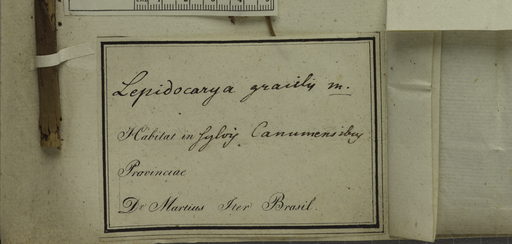 Lepidocarya gracilis m.
Habitat in sylvis Canumensibus
Provinciae
Dr Martius Iter Brasil.